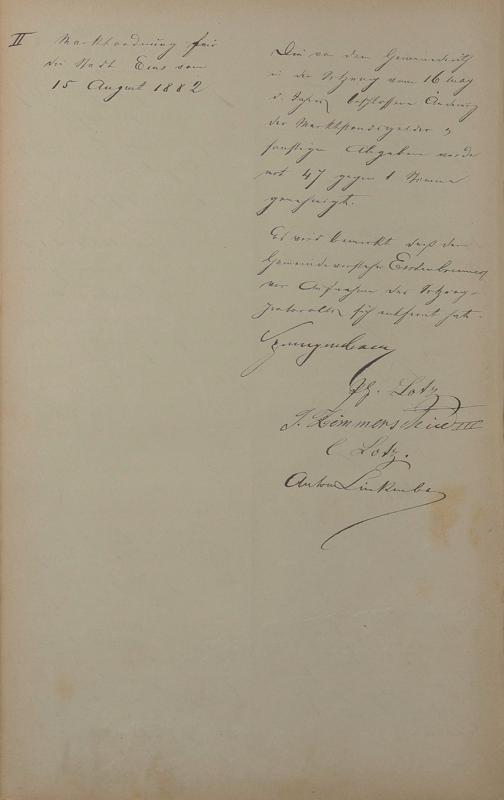 II Marktordnung für
die Stadt Ems vom
15 August 1882
Die von dem Gemeinderath
in der Sitzung vom 16 May
d. Jahres beschlossene Änderung
der Marktstandsgelder u
sonstigen Abgaben wurde
mit 47 gegen 1 Stimme
genehmigt.
Es wird bemerkt daß der
Gemeindevorsteher
vor Aufnahme des Sitzungs-
protocolls sich entfernt hat.
Ph. Lotz
J. Zimmerschied III
C Lotz.
Anton Linkenba